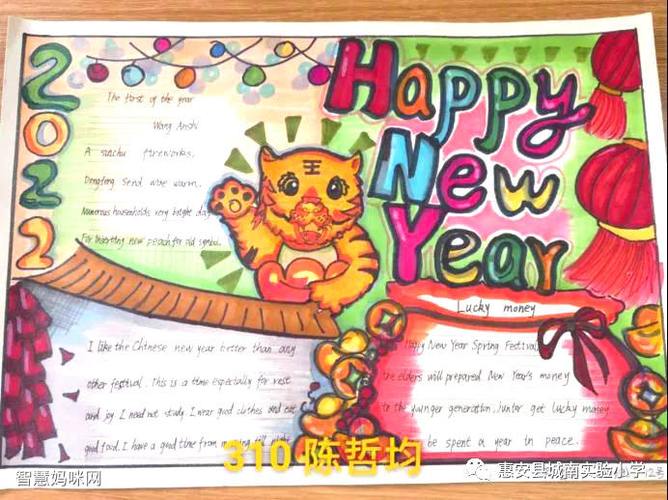 2022
Happy
New
Year
The first of the year
Wang Anshi
A suichu fireworks,
Dongfeng send wine warm.
Numerous households very bright day
For inserting new peach for old symbol.
王
Lucky money
Happy New Year Spring Festival
the elders will prepared New Year's money
to the younger generation. Junior get lucky money
be spent a year in peace.
I like the Chinese new year better than any
other festival. This is a time especially for rest
and joy. I need not study. I wear good clothes and eat
good food. I have a good time from morning till night
310 陈哲均
智慧妈咪网
惠安县城南实验小学